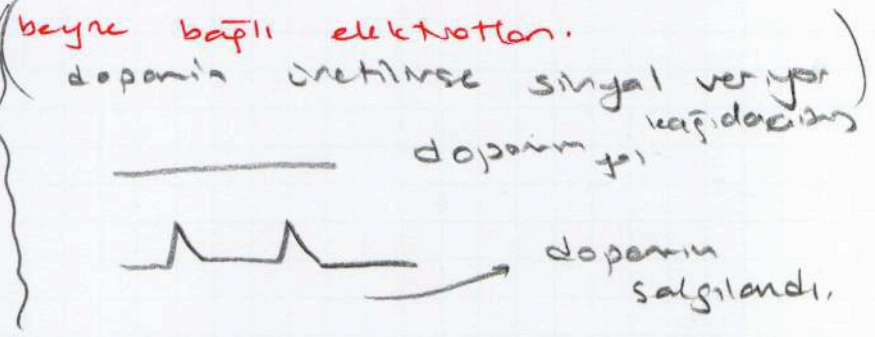 beyne bağlı elektrotlar.
dopamin üretilirse sinyal veriyor
dopamin
dopamin
salgılandı.